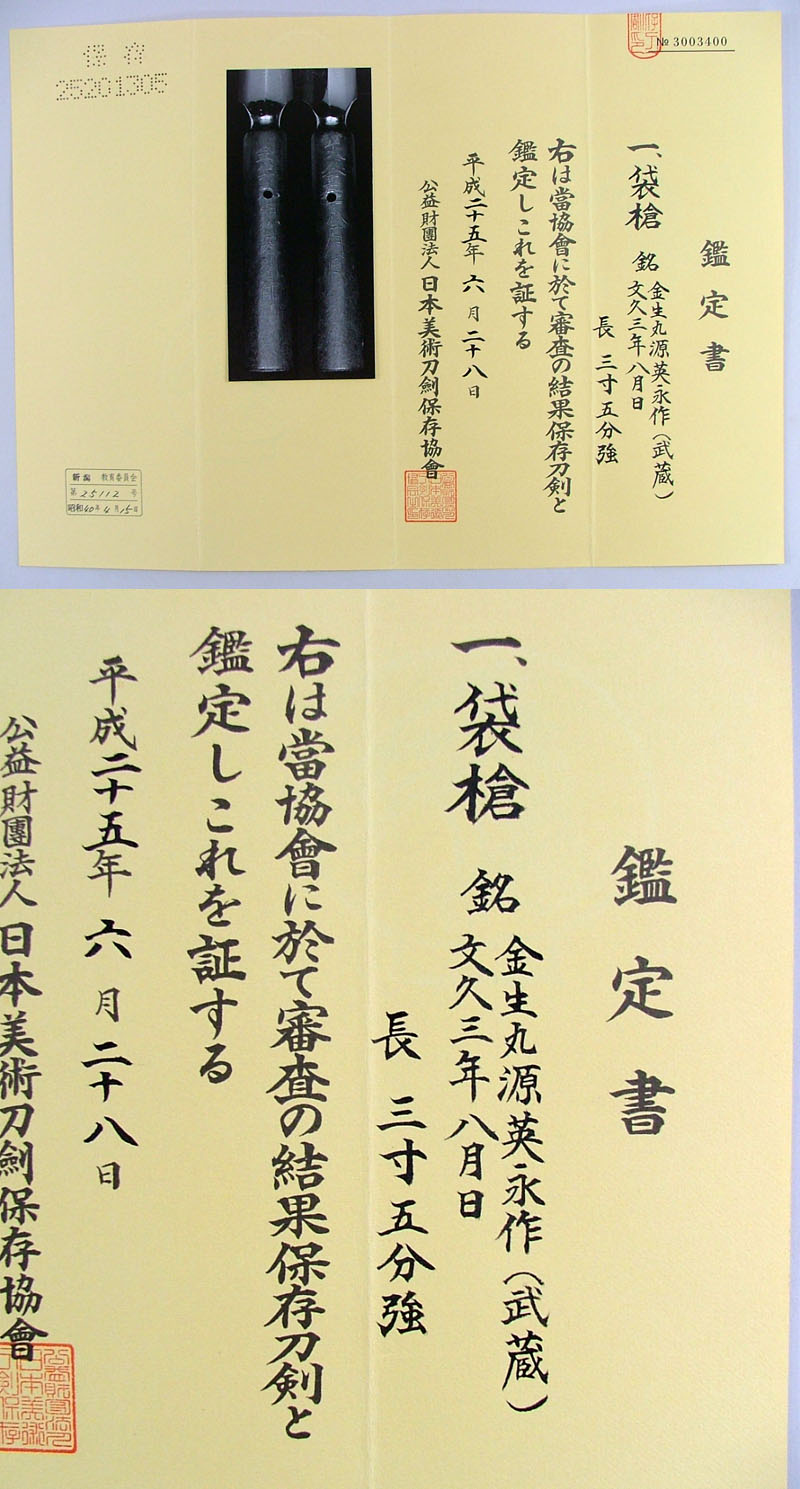 № 3003400
鑑定書
一、袋槍 銘 金生丸源英永作(武蔵)
文久三年八月日
長 三寸五分強
右は當協會に於て審査の結果保存刀剣と
鑑定しこれを証する
平成二十五年 六 月 二十八 日
公益財團法人 日本美術刀劍保存協會
保存
25201305
新潟 教育委員会
第 25112 号
昭和40年4月15日
鑑定書
一、袋槍 銘 金生丸源英永作(武蔵)
文久三年八月日
長 三寸五分強
右は當協會に於て審査の結果保存刀剣と
鑑定しこれを証する
平成二十五年 六 月 二十八 日
公益財團法人 日本美術刀劍保存協會